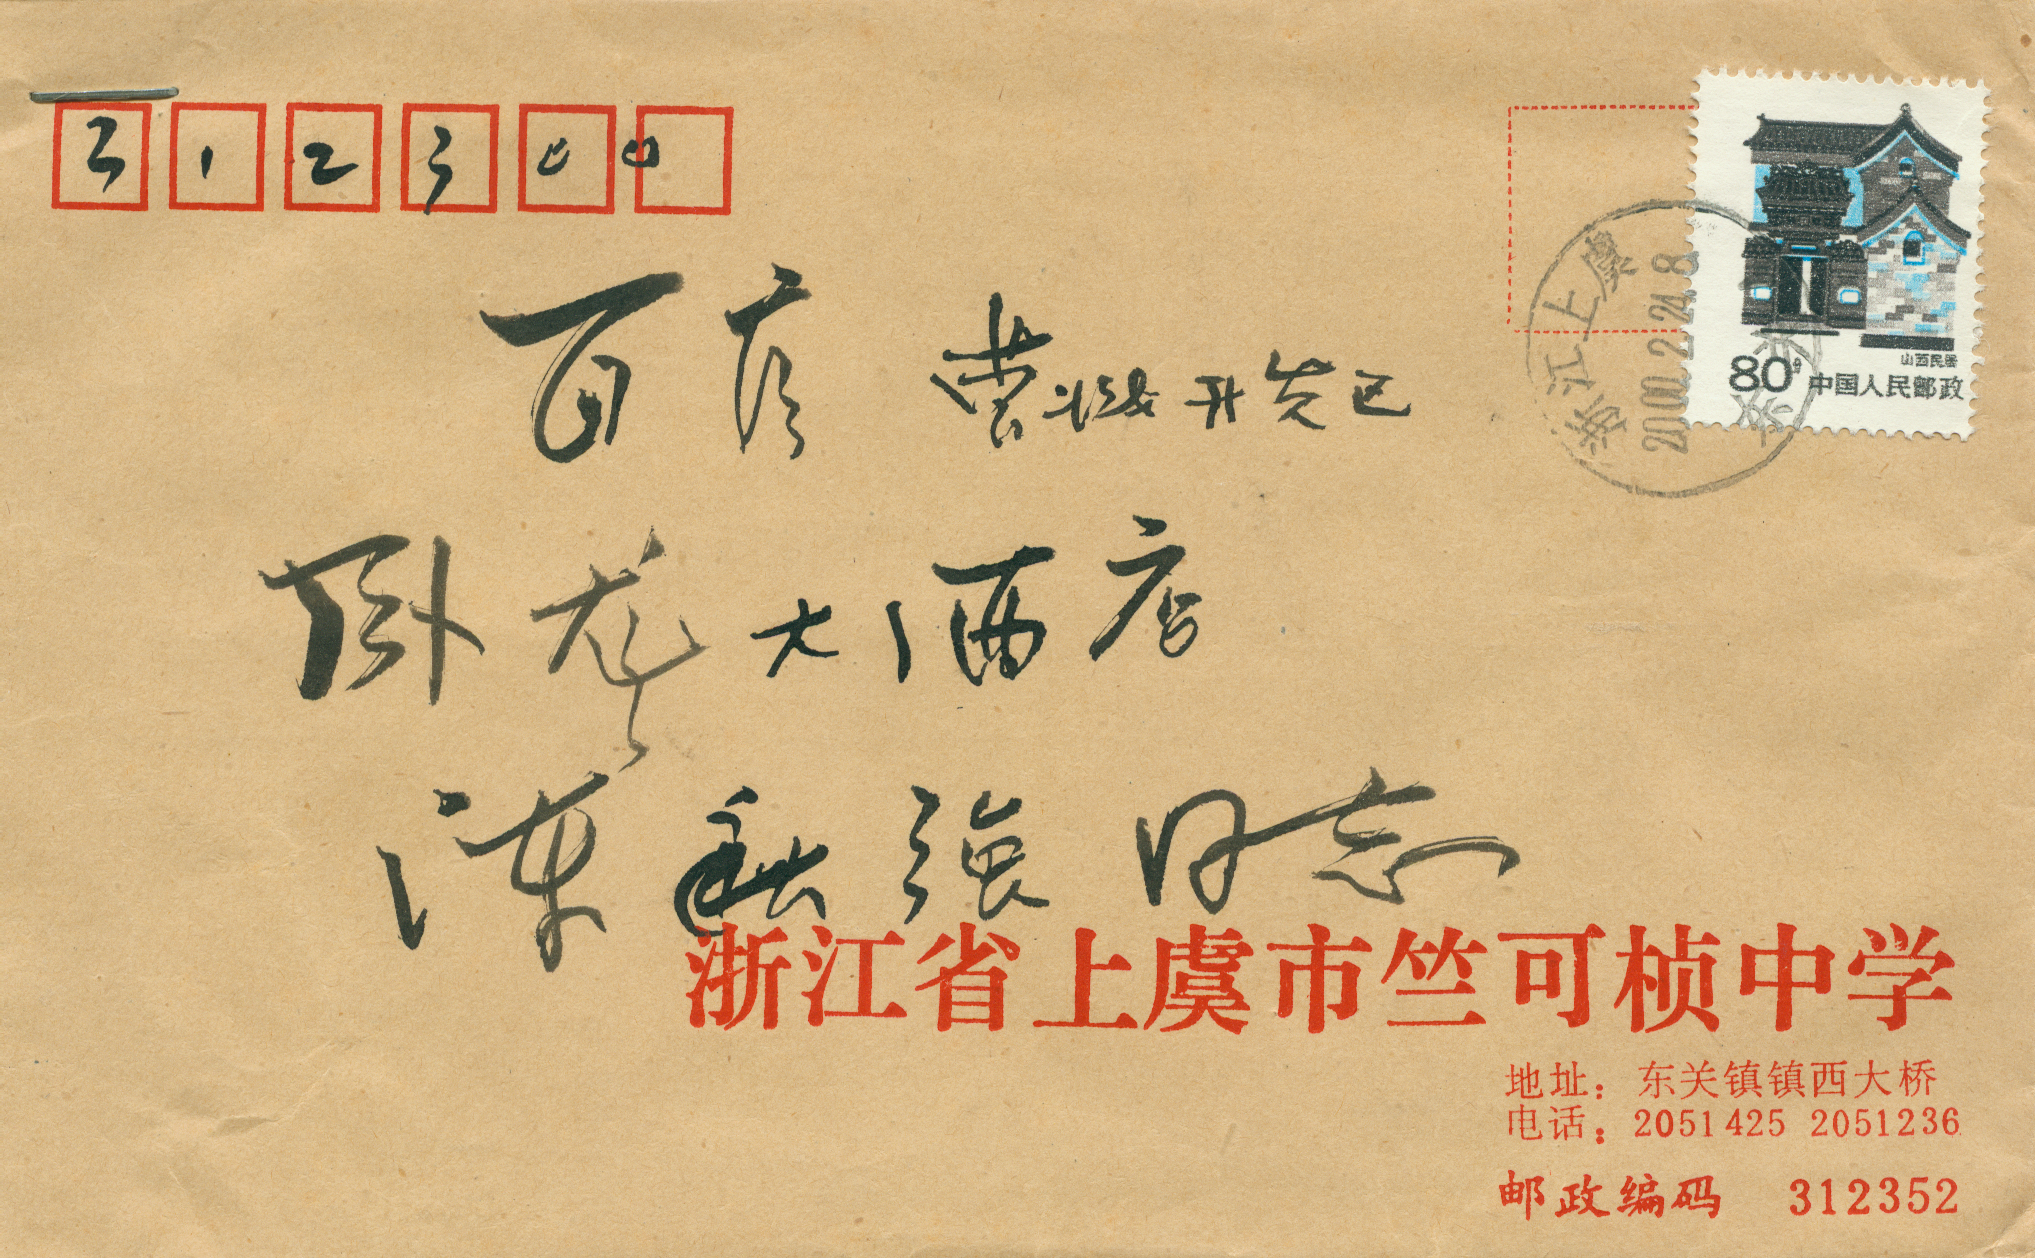 312300
百官 曹娥开发区
卧龙大酒店
陈秋强同志
山西民居
80分 中国人民邮政
浙江上虞
2000.2.24.8
浙江省上虞市竺可桢中学
地址：东关镇镇西大桥
电话：2051425 2051236
邮政编码 312352